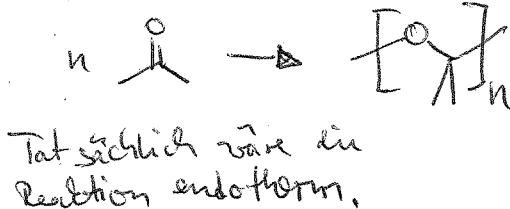 n O → [ O ]n
Tatsächlich wäre die
Reaktion endotherm.